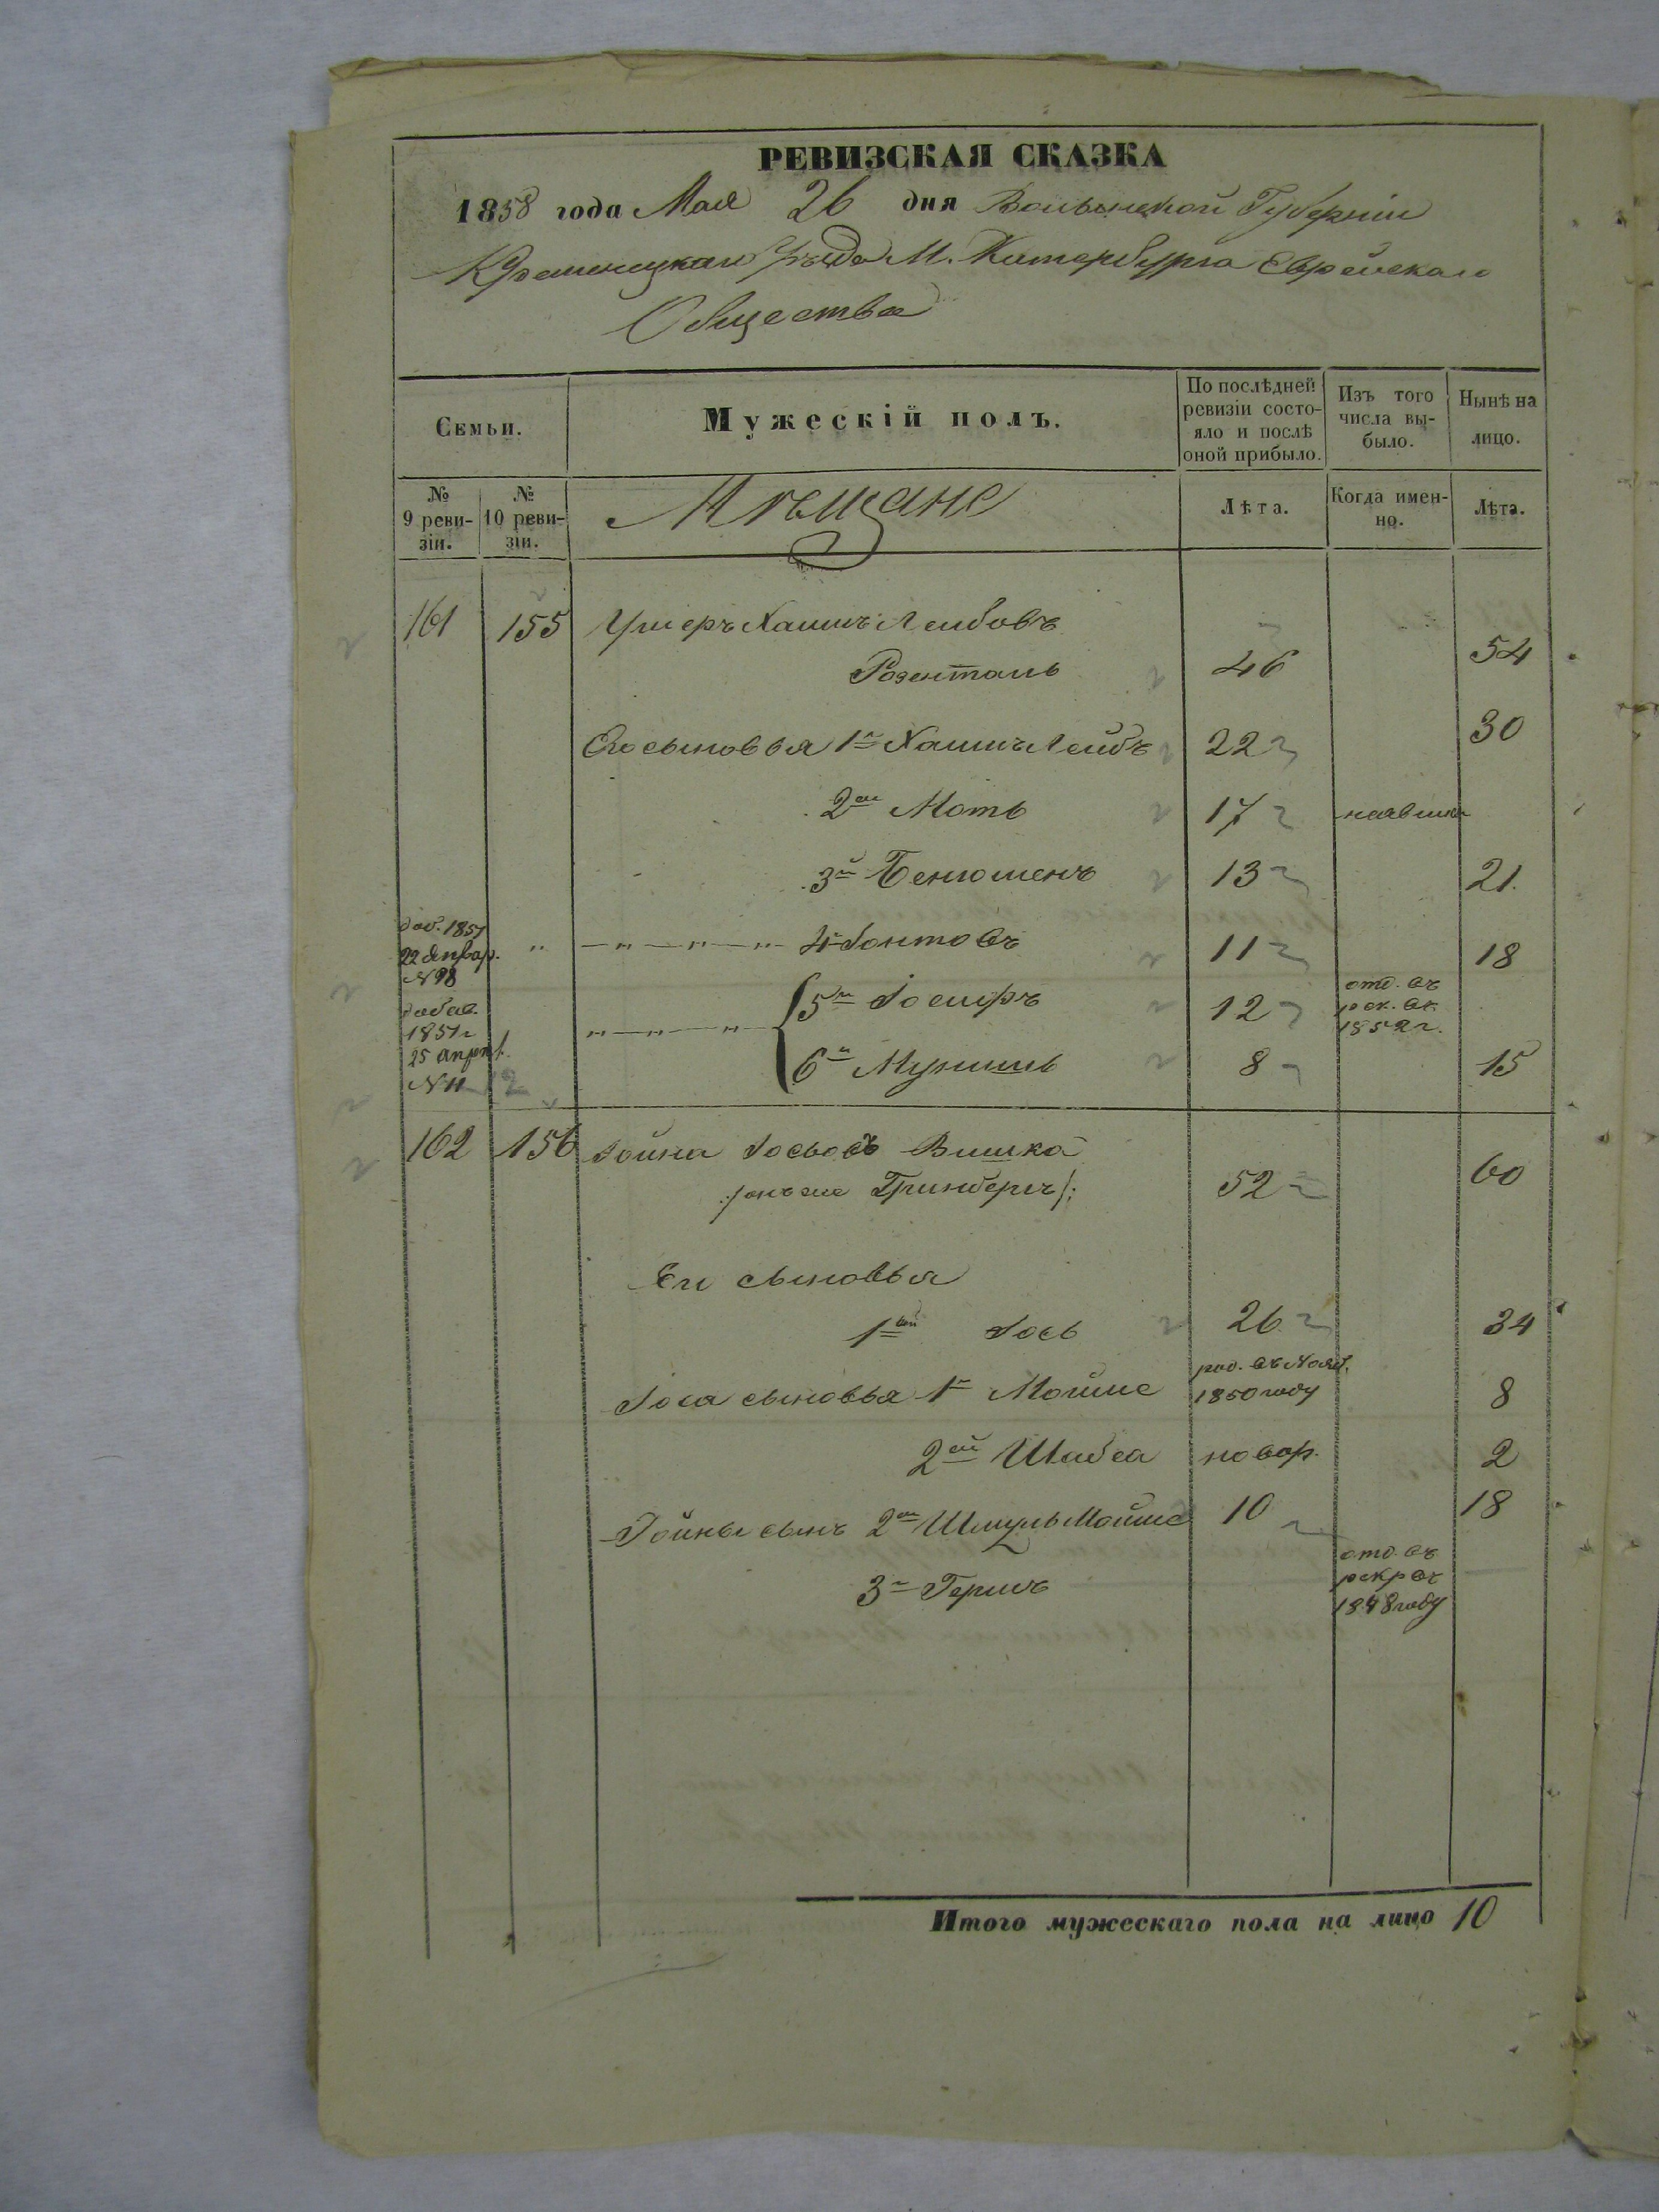 РЕВИЗСКАЯ СКАЗКА
1858 года Мая 26 дня Волынской Губернiи
Кременецкаго Уѣзда М. Катербурга Еврейскаго
Общества
Семьи.
Мужескiй полъ.
По послѣдней ревизiи состо-
яло и послѣ
оной прибыло.
Изъ того
числа вы-
было.
Нынѣ на
лицо.
№
9 реви-
зiи.
№
10 реви-
зiи.
Мѣщане
Лѣта.
Когда имен-
но.
Лѣта.
161 155 Ушеръ Хаимъ Лейбовъ
Розенталь 46 54
Его сыновья 1й Хаимъ Лейбъ 22 30
2ой Моть 17 неявился
3й Бенюменъ 13 21.
доб. 1851
22 Январ.
№ 98
" — " — " — " 4й 11 18
добав.
1851 г.
25 апрѣл.
№ 11
" — " — " 5й Iосифъ 12
отд. въ
рек. въ
1852 г.
6й Мунишь 8 15
162 156 Iойна Iосьовъ Вишка
/:онъ же Гринбергъ/: 52 60
Его сыновья
1вый Iось 26 34
Iося сыновья 1й Мойше
род. въ Нояб.
1850 году
8
2ой Шабса новор. 2
Iойны сынъ 2ой Шмуль Мойше 10 18
3й Гершъ
отд. въ
рекр въ
1848 году
Итого мужескаго пола на лицо 10